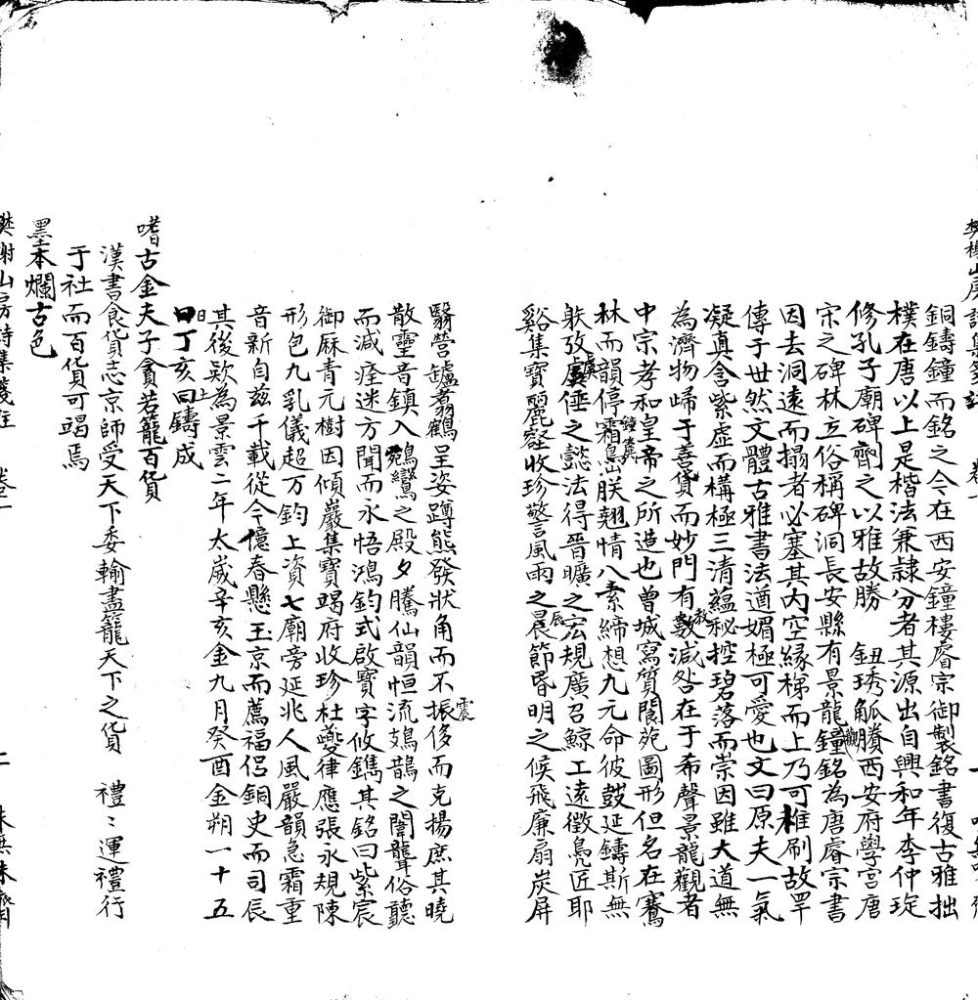 銅鑄鐘而銘之今在西安鐘樓睿宗御製銘書復古雅拙
樸在唐以上是楷法兼隸分者其源出自興和年李仲琁
修孔子廟碑劑之以雅故勝　鈕琇觚賸西安府學宮唐
宋之碑林立俗稱碑洞長安縣有景龍鐘銘為唐睿宗書
因去洞遠而搨者必塞其內空緣梯而上乃可椎刷故罕
傳于世然文體古雅書法遒媚極可愛也文曰原夫一氣
凝真含紫虛而構極三清蘊秘控碧落而崇因雖大道無
為濟物歸于善貸而妙門有教減咎在于希聲景龍觀者
中宗孝和皇帝之所造也曾城寫質閬苑圖形但名在騫
林而韻停霜鐘虡朕翹情八素締想九元命彼鼓延鑄斯無
躬攷虞倕之懿法得晉曠之宏規廣召鯨工遠徵鳧匠耶
谿集寶麗壑收珍警風雨之晨節昏明之候飛廉扇炭屏
翳營鑪翥鶴呈姿蹲熊發狀角而不震侈而克揚庶其曉
散靈音鎮入鵷鸞之殿夕騰仙韻恒流鳷鵲之闈聾俗聽
而減痊迷方聞而永悟鴻鈞式啟寶字攸鐫其銘曰紫宸
御厤青元樹因傾巖集寶竭府收珍杜夔律應張永規陳
形包九乳儀超万鈞上資七廟旁延兆人風嚴韻急霜重
音新自茲千載從今億春懸玉京而薦福侶銅史而司辰
其後欵為景雲二年太歲辛亥金九月癸酉金朔一十五
日丁亥土鑄成
嗜古金夫子貪若籠百貨
漢書食貨志京師受天下委輸盡籠天下之貨　禮〻運禮行
于社而百貨可竭焉
墨本爛古色
樊榭山房詩集箋註　卷二